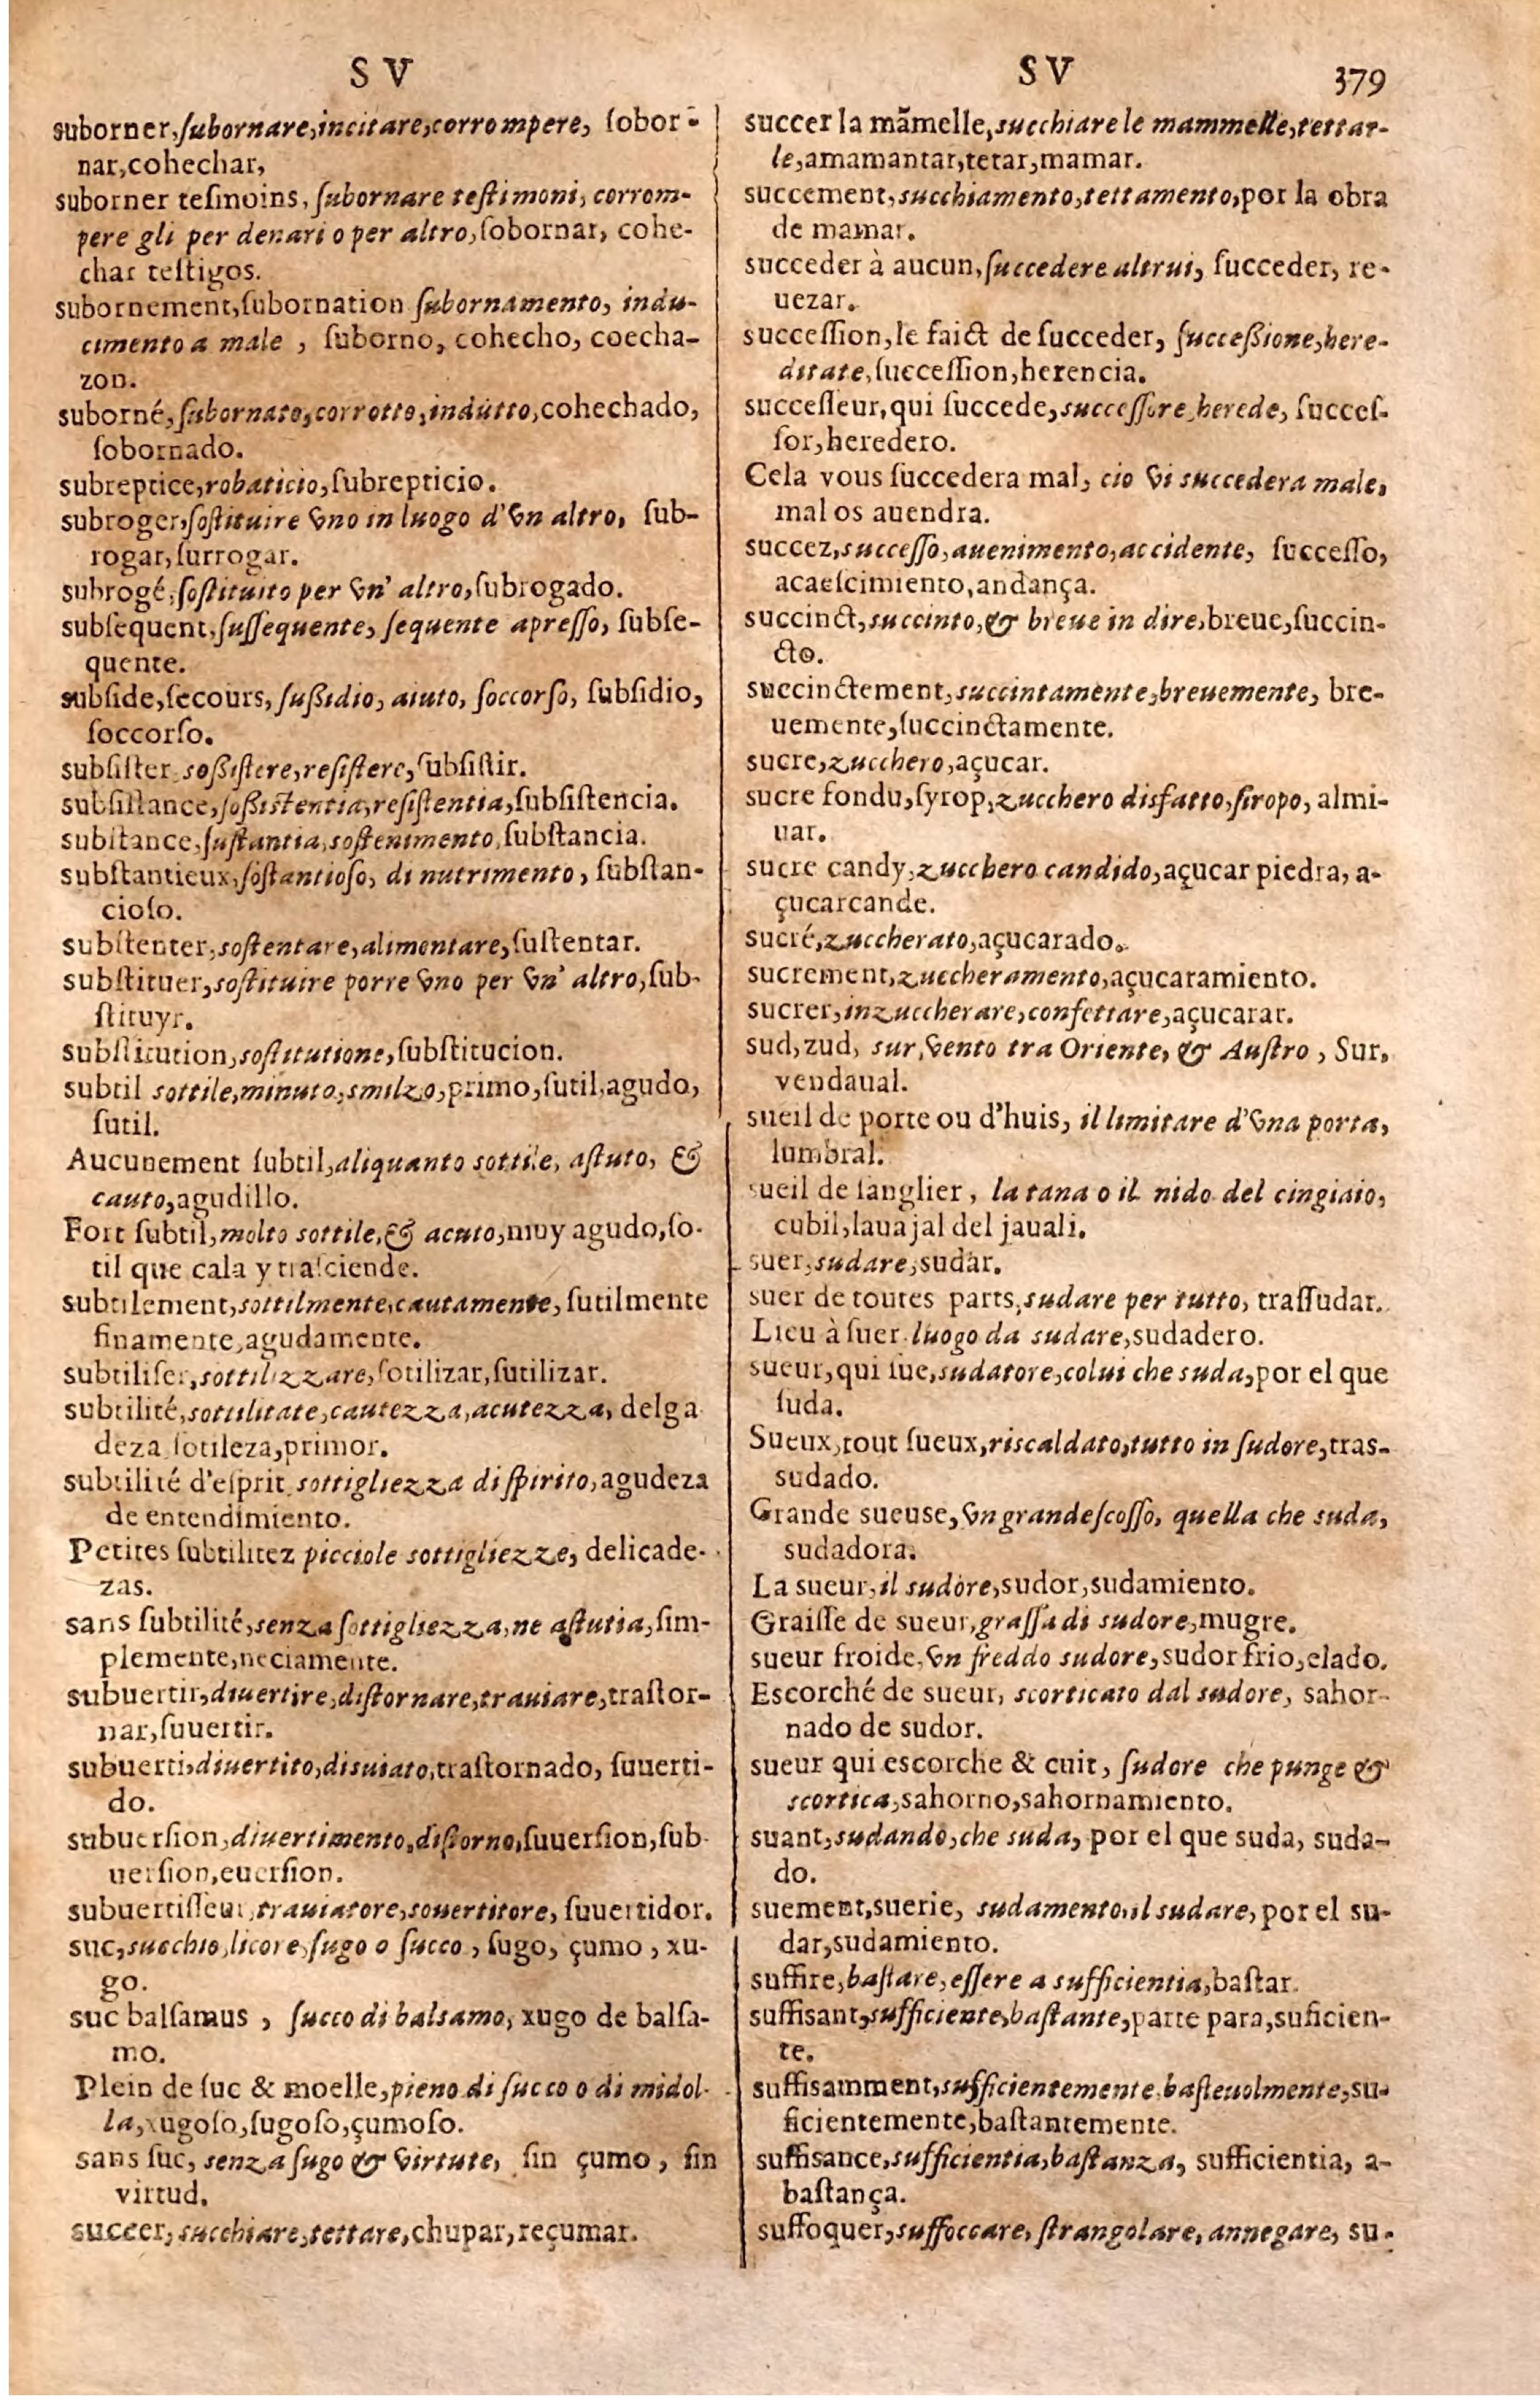 S V
suborner, ſubornare, incitare, corrompere, ſobor-
nar, cohechar,
suborner teſmoins, ſubornare teſtimoni, corrom-
pere gli per denari o per altro, ſobornar, cohe-
char teſtigos.
subornement, ſubornation ſubornamento, indu-
cimento a male, ſuborno, cohecho, coecha-
zon.
suborné, ſubornato, corrotto, indutto, cohechado,
ſobornado.
subreptice, robaticio, ſubrepticio.
subroger, ſoſtituire vno in luogo d'vn altro, ſub-
rogar, ſurrogar.
subrogé, ſoſtituito per vn' altro, ſubrogado.
subſequent, ſuſſequente, ſequente apreſſo, ſubſe-
quente.
subſide, ſecours, ſußidio, aiuto, ſoccorſo, ſubſidio,
ſoccorſo.
subſiſter, soßiſtere, reſiſtere, ſubſiſtir.
subſiſtance, ſoßiſtentia, reſiſtentia, ſubſiſtencia.
subſtance, ſuſtantia, soſtenimento, ſubſtancia.
subſtantieux, ſoſtantioſo, di nutrimento, ſubſtan-
cioſo.
subſtenter, soſtentare, alimentare, ſuſtentar.
subſtituer, soſtituire porre vno per vn' altro, ſub-
ſtituyr.
subſtitution, soſtitutione, ſubſtitucion.
subtil sottile, minuto, smilzo, primo, ſutil, agudo,
ſutil.
Aucunement ſubtil, aliquanto sottile, aſtuto, &
cauto, agudillo.
Fort ſubtil, molto sottile, & acuto, muy agudo, ſo-
til que cala y traſciende.
subtilement, sottilmente, cautamente, ſutilmente
finamente, agudamente.
subtiliſer, sottilizzare, ſotilizar, ſutilizar.
subtilité, sottilitate, cautezza, acutezza, delga
deza ſotileza, primor.
subtilité d'eſprit, sottigliezza di ſpirito, agudeza
de entendimiento.
Petites ſubtilitez picciole sottigliezze, delicade-
zas.
sans ſubtilité, senza ſottigliezza, ne aſtutia, ſim-
plemente, neciamente.
subuertir, diuertire, diſtornare, trauiare, traſtor-
nar, ſuuertir.
subuerti, diuertito, disuiato, traſtornado, ſuuerti-
do.
subuerſion, diuertimento, diſtorno, ſuuerſion, ſub-
uerſion, euerſion.
subuertiſſeur, trauiatore, souertitore, ſuuertidor.
suc, succhio, licore, ſugo o ſucco, ſugo, çumo, xu-
go.
suc balſamus, ſucco di balsamo, xugo de balſa-
mo.
Plein de ſuc & moelle, pieno di ſucco o di midol-
la, xugoſo, ſugoſo, çumoſo.
sans ſuc, senza ſugo & virtute, ſin çumo, ſin
virtud.
succer, succhiare, tettare, chupar, reçumar.
S V 379
succer la mãmelle, succhiare le mammelle, tettar-
le, amamantar, tetar, mamar.
succement, succhiamento, tettamento, por la obra
de mamar.
succeder à aucun, ſuccedere altrui, ſucceder, re-
uezar.
succeſſion, le faict de ſucceder, ſucceßione, here-
ditate, ſucceſſion, herencia.
succeſſeur, qui ſuccede, succeſſore, herede, ſucceſ-
ſor, heredero.
Cela vous ſuccedera mal, cio vi succedera male,
mal os auendra.
succez, succeſſo, auenimento, accidente, ſucceſſo,
acaeſcimiento, andança.
succinct, succinto, & breue in dire, breue, ſuccin-
cto.
succinctement, succintamente, breuemente, bre-
uemente, ſuccinctamente.
sucre, zucchero, açucar.
sucre fondu, ſyrop, zucchero disfatto, ſiropo, almi-
uar.
sucre candy, zucchero candido, açucar piedra, a-
çucarcande.
sucré, zuccherato, açucarado.
sucrement, zuccheramento, açucaramiento.
sucrer, inzuccherare, confettare, açucarar.
sud, zud, sur, vento tra Oriente, & Auſtro, Sur,
vendaual.
sueil de porte ou d'huis, il limitare d'vna porta,
lumbral.
sueil de ſanglier, la tana o il nido del cingiaio,
cubil, lauajal del jauali.
suer, sudare, sudar.
suer de toutes parts, sudare per tutto, traſſudar.
Lieu à ſuer luogo da sudare, sudadero.
sueur, qui ſue, sudatore, colui che suda, por el que
ſuda.
Sueux, tout ſueux, riscaldato, tutto in ſudore, tras-
sudado.
Grande sueuse, vn grande ſcoſſo, quella che suda,
sudadora.
La sueur, il sudore, sudor, sudamiento.
Graiſſe de sueur, graſſa di sudore, mugre.
sueur froide, vn freddo sudore, sudor frio, elado.
Escorché de sueur, scorticato dal sudore, sahor-
nado de sudor.
sueur qui escorche & cuit, ſudore che punge &
scortica, sahorno, sahornamiento.
suant, sudando, che suda, por el que suda, suda-
do.
suement, suerie, sudamento, il sudare, por el su-
dar, sudamiento.
suffire, baſtare, eſſere a sufficientia, baſtar.
suffisant, sufficiente, baſtante, parte para, suficien-
te.
suffisamment, sufficientemente baſteuolmente, su-
ficientemente, baſtantemente.
suffisance, sufficientia, baſtanza, sufficientia, a-
baſtança.
suffoquer, suffoccare, ſtrangolare, annegare, su-